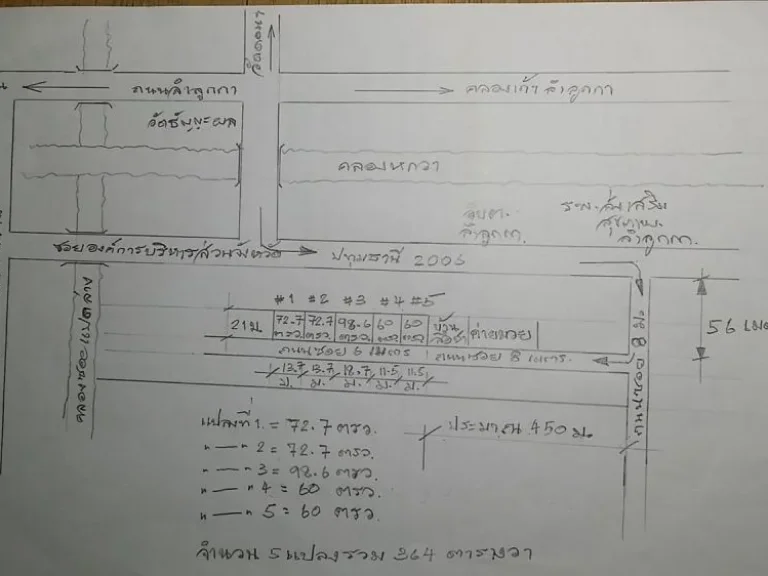 วัดดอนนา
ถนนลำลูกกา
คลองเก้า ลำลูกกา
คลองหกวา
รพ.ส่งเสริม
สุขภาพ
ลำลูกกา
อบต.
ลำลูกกา
ซอยองค์การบริหารส่วนจังหวัด ปทุมธานี 2006
#1 #2 #3 #4 #5
21 ม. 72.7 ตรว. 72.7 ตรว. 98.6 ตรว. 60 ตรว. 60 ตรว. บ้าน ค่ายมวย
ถนนซอย 6 เมตร ถนนซอย 8 เมตร.
13.7 ม. 13.7 ม. 18.7 ม. 11.5 ม. 11.5 ม.
56 เมต
แปลงที่ 1. = 72.7 ตรว.
" — " 2 = 72.7 ตรว.
" — " 3 = 98.6 ตรว.
" — " 4 = 60 ตรว.
" — " 5 = 60 ตรว.
ประมาณ 450 ม.
จำนวน 5 แปลงรวม 364 ตารางวา